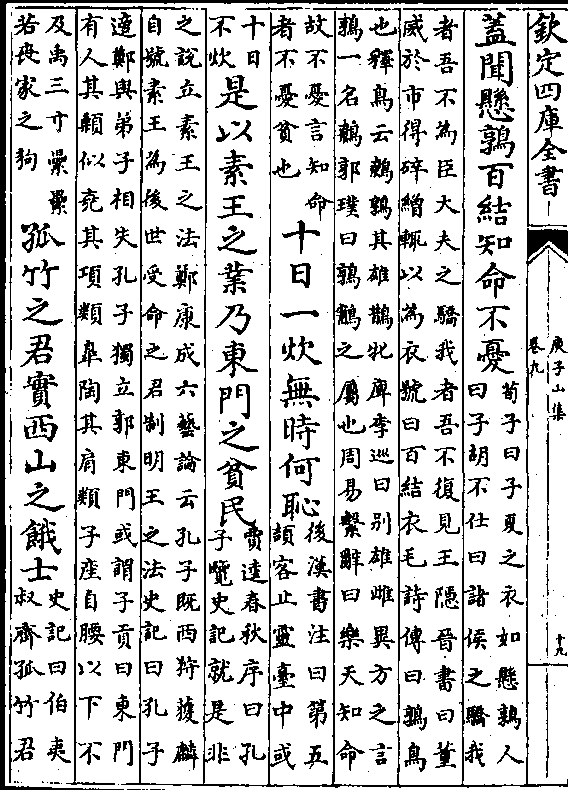 欽定四庫全書
庚子山集
卷九
十九
蓋聞懸鶉百結知命不憂
荀子曰子夏之衣如懸鶉人
曰子胡不仕曰諸侯之驕我
者吾不為臣大夫之驕我者吾不復見王隠晉書曰董
威於市得碎繒輒以為衣號曰百結衣毛詩傳曰鶉鳥
也釋鳥云鷯鶉其雄鶛牝庳李巡曰别雄雌異方之言
鶉一名鷯郭璞曰鶉鷃之屬也周易繫辭曰樂天知命
故不憂言知命
者不憂貧也
十日一炊無時何恥
後漢書注曰第五
頡客止靈臺中或
十日
不炊
是以素王之業乃東門之貧民
賈逵春秋序曰孔
子覽史記就是非
之說立素王之法鄭康成六藝論云孔子既西狩獲麟
自號素王為後世受命之君制明王之法史記曰孔子
適鄭與弟子相失孔子獨立郭東門或謂子貢曰東門
有人其顙似堯其項類臯陶其肩類子產自腰以下不
及禹三寸纍纍
若喪家之狗
孤竹之君實西山之餓士
史記曰伯夷
叔齊孤竹君